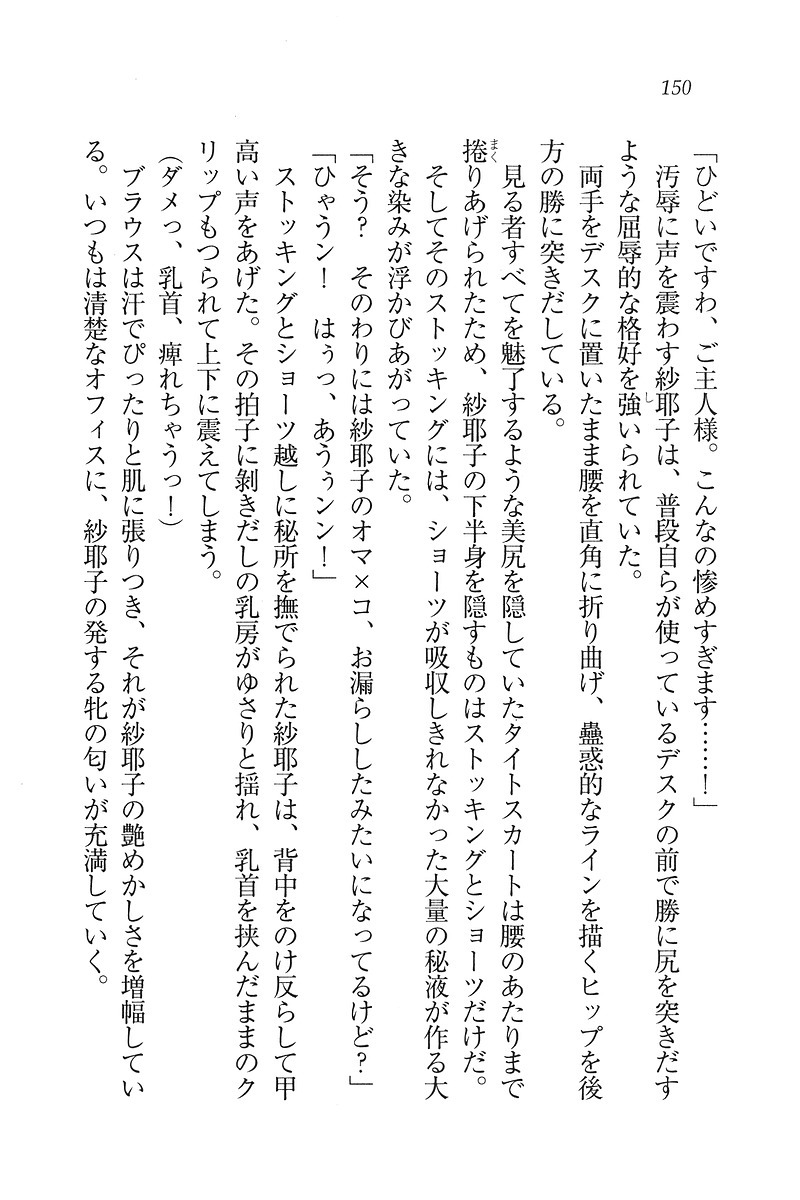 150
「ひどいですわ、ご主人様。こんなの惨めすぎます……！」
　汚辱に声を震わす紗耶子は、普段自らが使っているデスクの前で勝に尻を突きだす
ような屈辱的な格好を強いられていた。
　両手をデスクに置いたまま腰を直角に折り曲げ、蠱惑的なラインを描くヒップを後
方の勝に突きだしている。
　見る者すべてを魅了するような美尻を隠していたタイトスカートは腰のあたりまで
捲りあげられたため、紗耶子の下半身を隠すものはストッキングとショーツだけだ。
　そしてそのストッキングには、ショーツが吸収しきれなかった大量の秘液が作る大
きな染みが浮かびあがっていた。
「そう？　そのわりには紗耶子のオマ×コ、お漏らししたみたいになってるけど？」
「ひゃうン！　はぅっ、あうぅンン！」
　ストッキングとショーツ越しに秘所を撫でられた紗耶子は、背中をのけ反らして甲
高い声をあげた。その拍子に剝きだしの乳房がゆさりと揺れ、乳首を挟んだままのク
リップもつられて上下に震えてしまう。
（ダメっ、乳首、痺れちゃうっ！）
　ブラウスは汗でぴったりと肌に張りつき、それが紗耶子の艶めかしさを増幅してい
る。いつもは清楚なオフィスに、紗耶子の発する牝の匂いが充満していく。